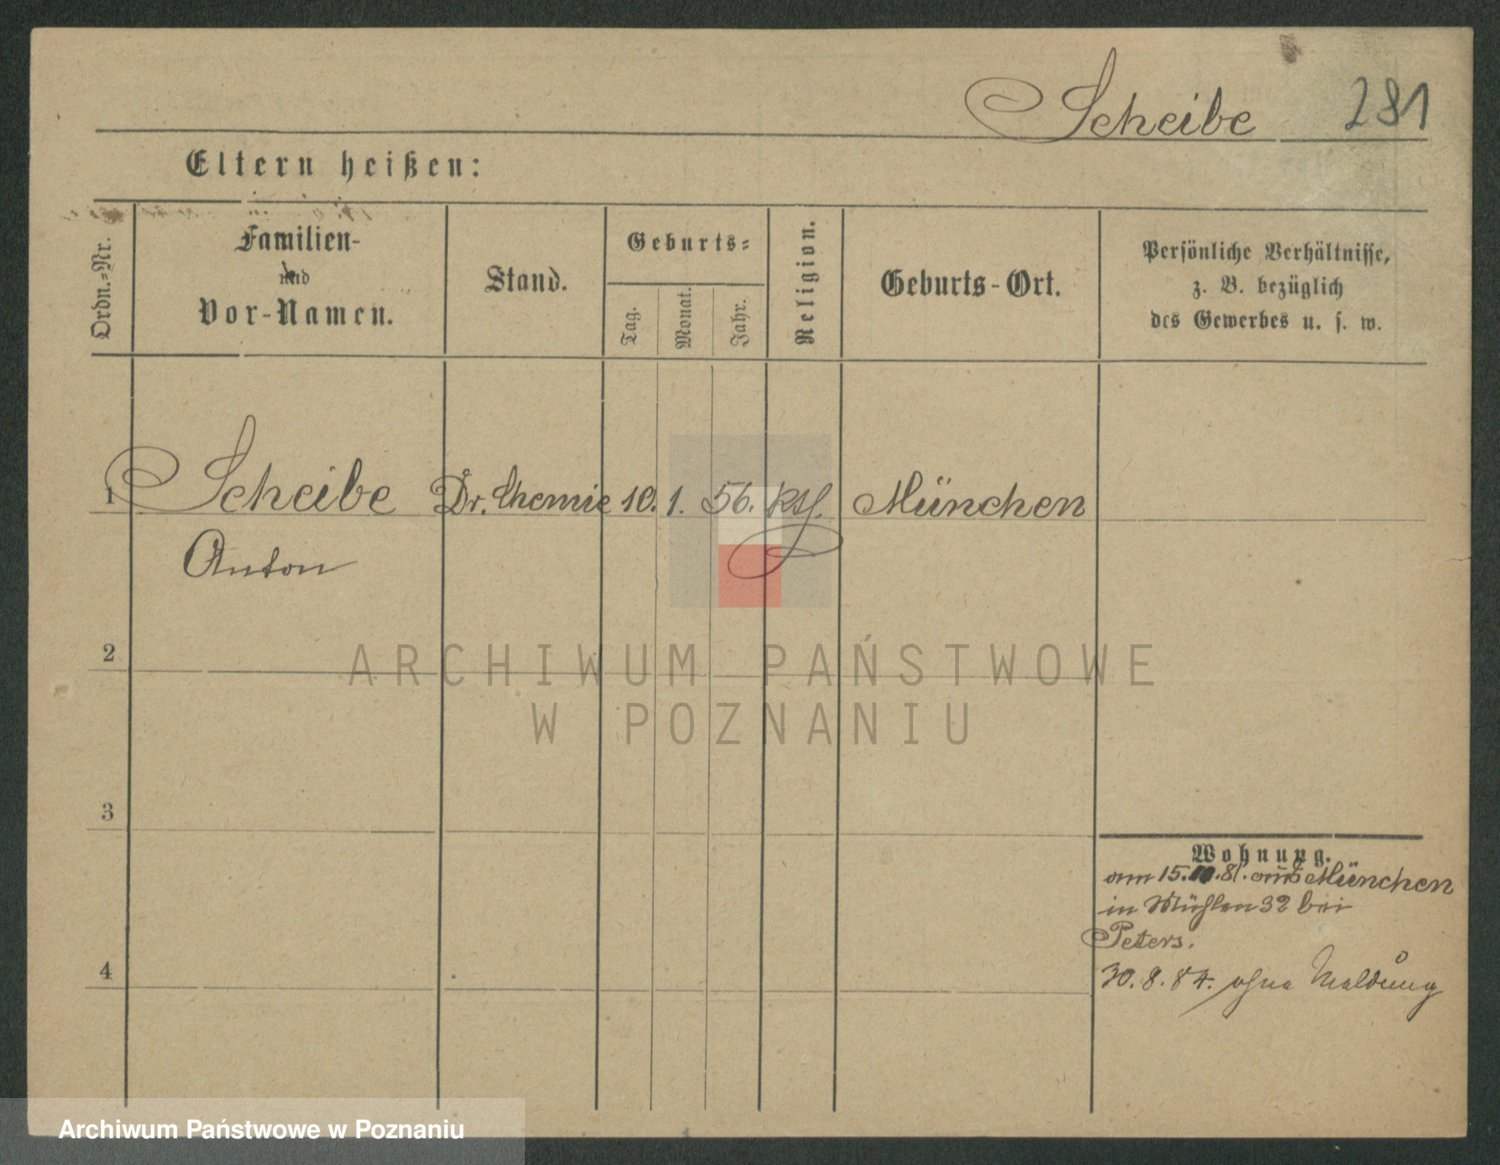 Scheibe 281
Eltern heißen:
Ordn.-Nr.
Familien-
und
Vor-Namen.
Stand.
Geburts-
Tag.
Monat.
Jahr.
Religion.
Geburts-Ort.
Persönliche Verhältnisse,
z. B. bezüglich
des Gewerbes u. s. w.
1 Scheibe Dr. Chemie 10. 1. 56. ktl. München
Anton
2
ARCHIWUM PAŃSTWOWE
W POZNANIU
3
Wohnung.
am 15.10.81. aus München
in Mühlen 32 bei
Peters.
4
30.8.84. ohne Meldung
Archiwum Państwowe w Poznaniu